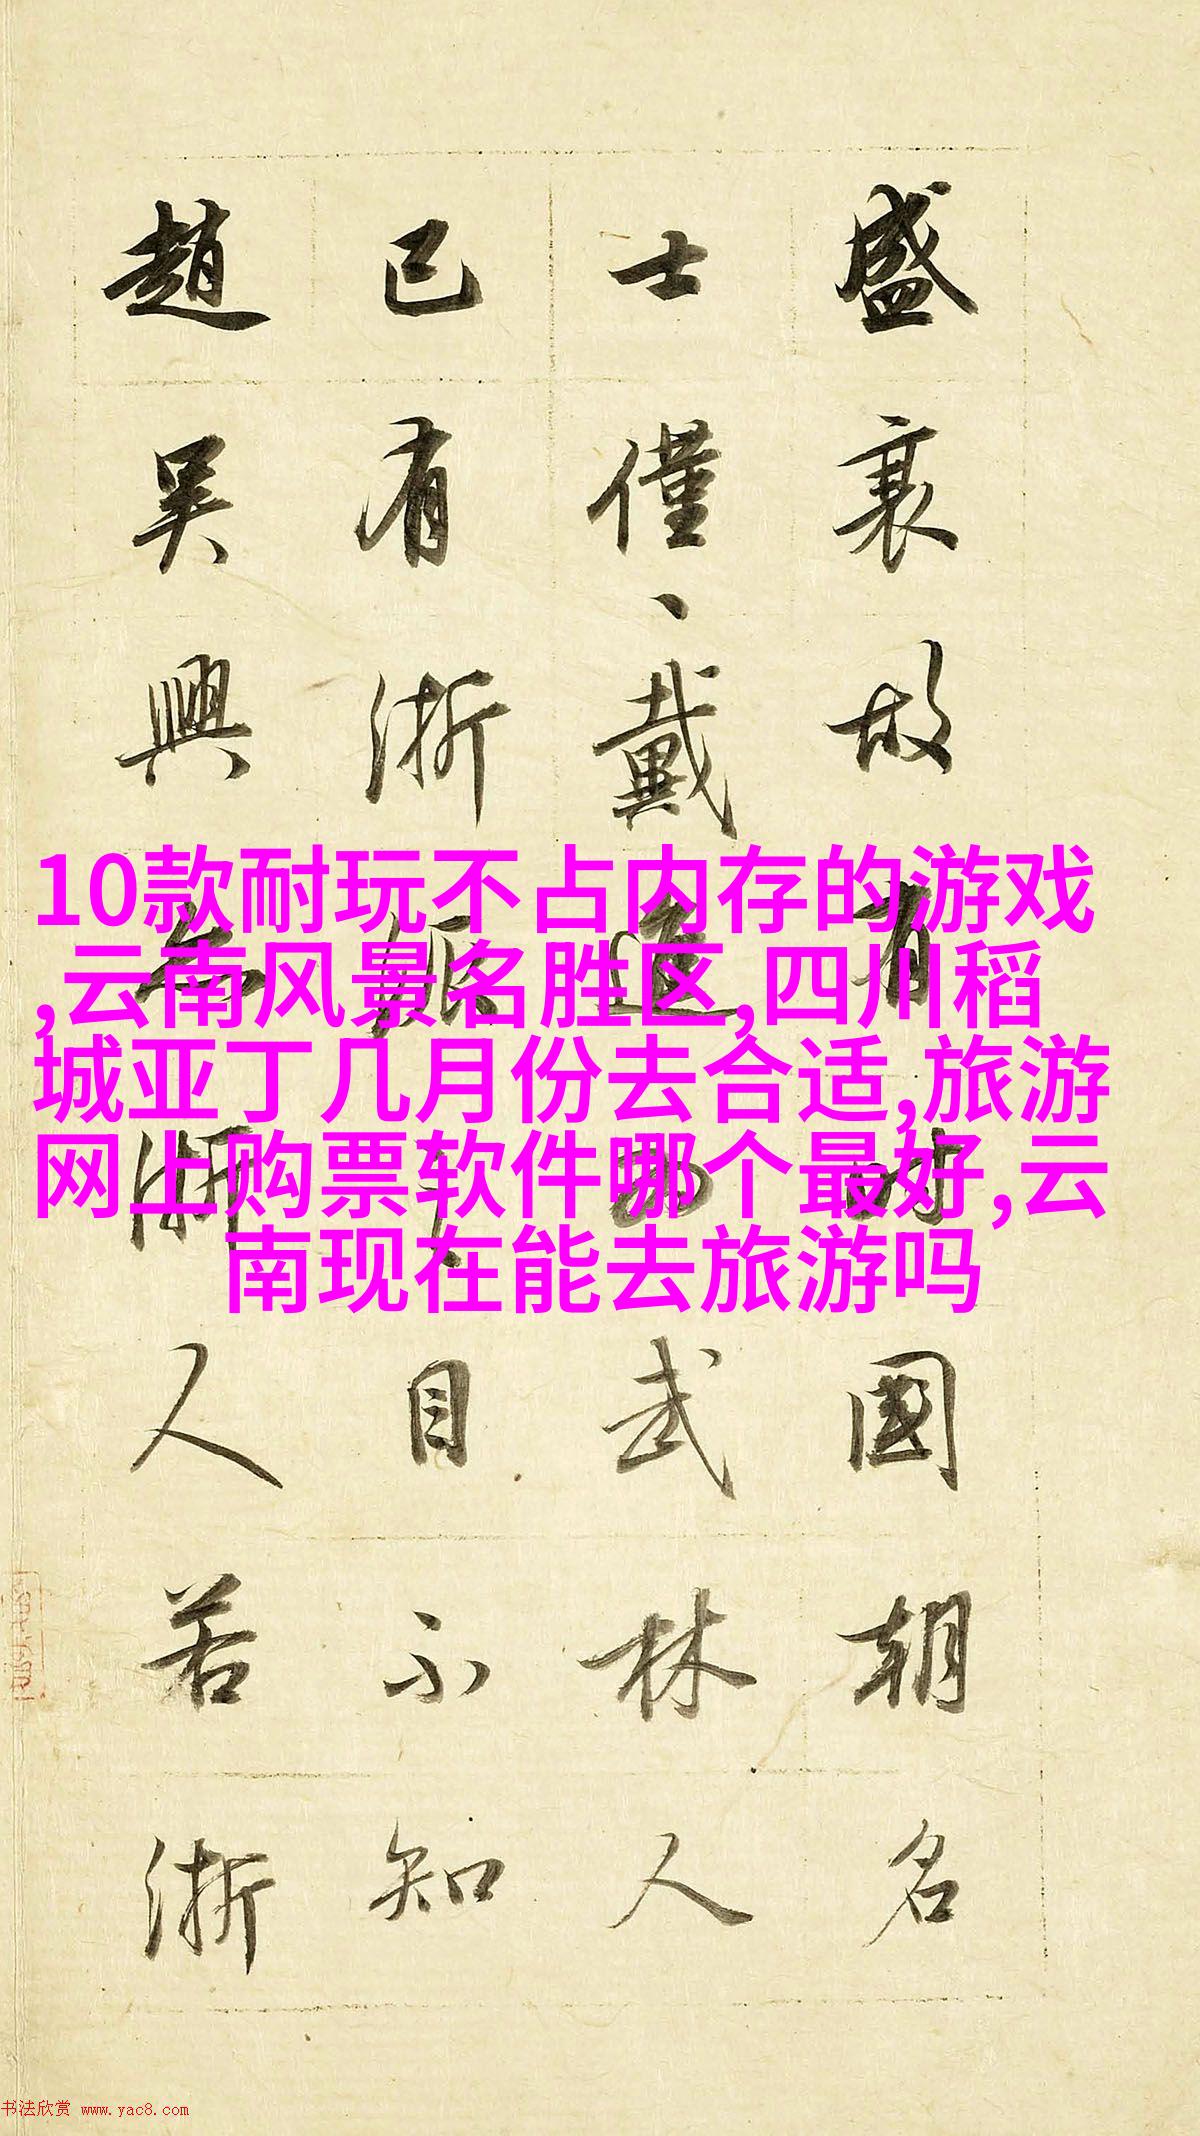 盛衰故有時國朝名
士僅、戴進為武林人
已有浙派之目不知
趙吳興亦浙人若浙
10款耐玩不占内存的游戏
,云南风景名胜区,四川稻
城亚丁几月份去合适,旅游
网上购票软件哪个最好,云
南现在能去旅游吗
书法欣赏 www.yac8.com